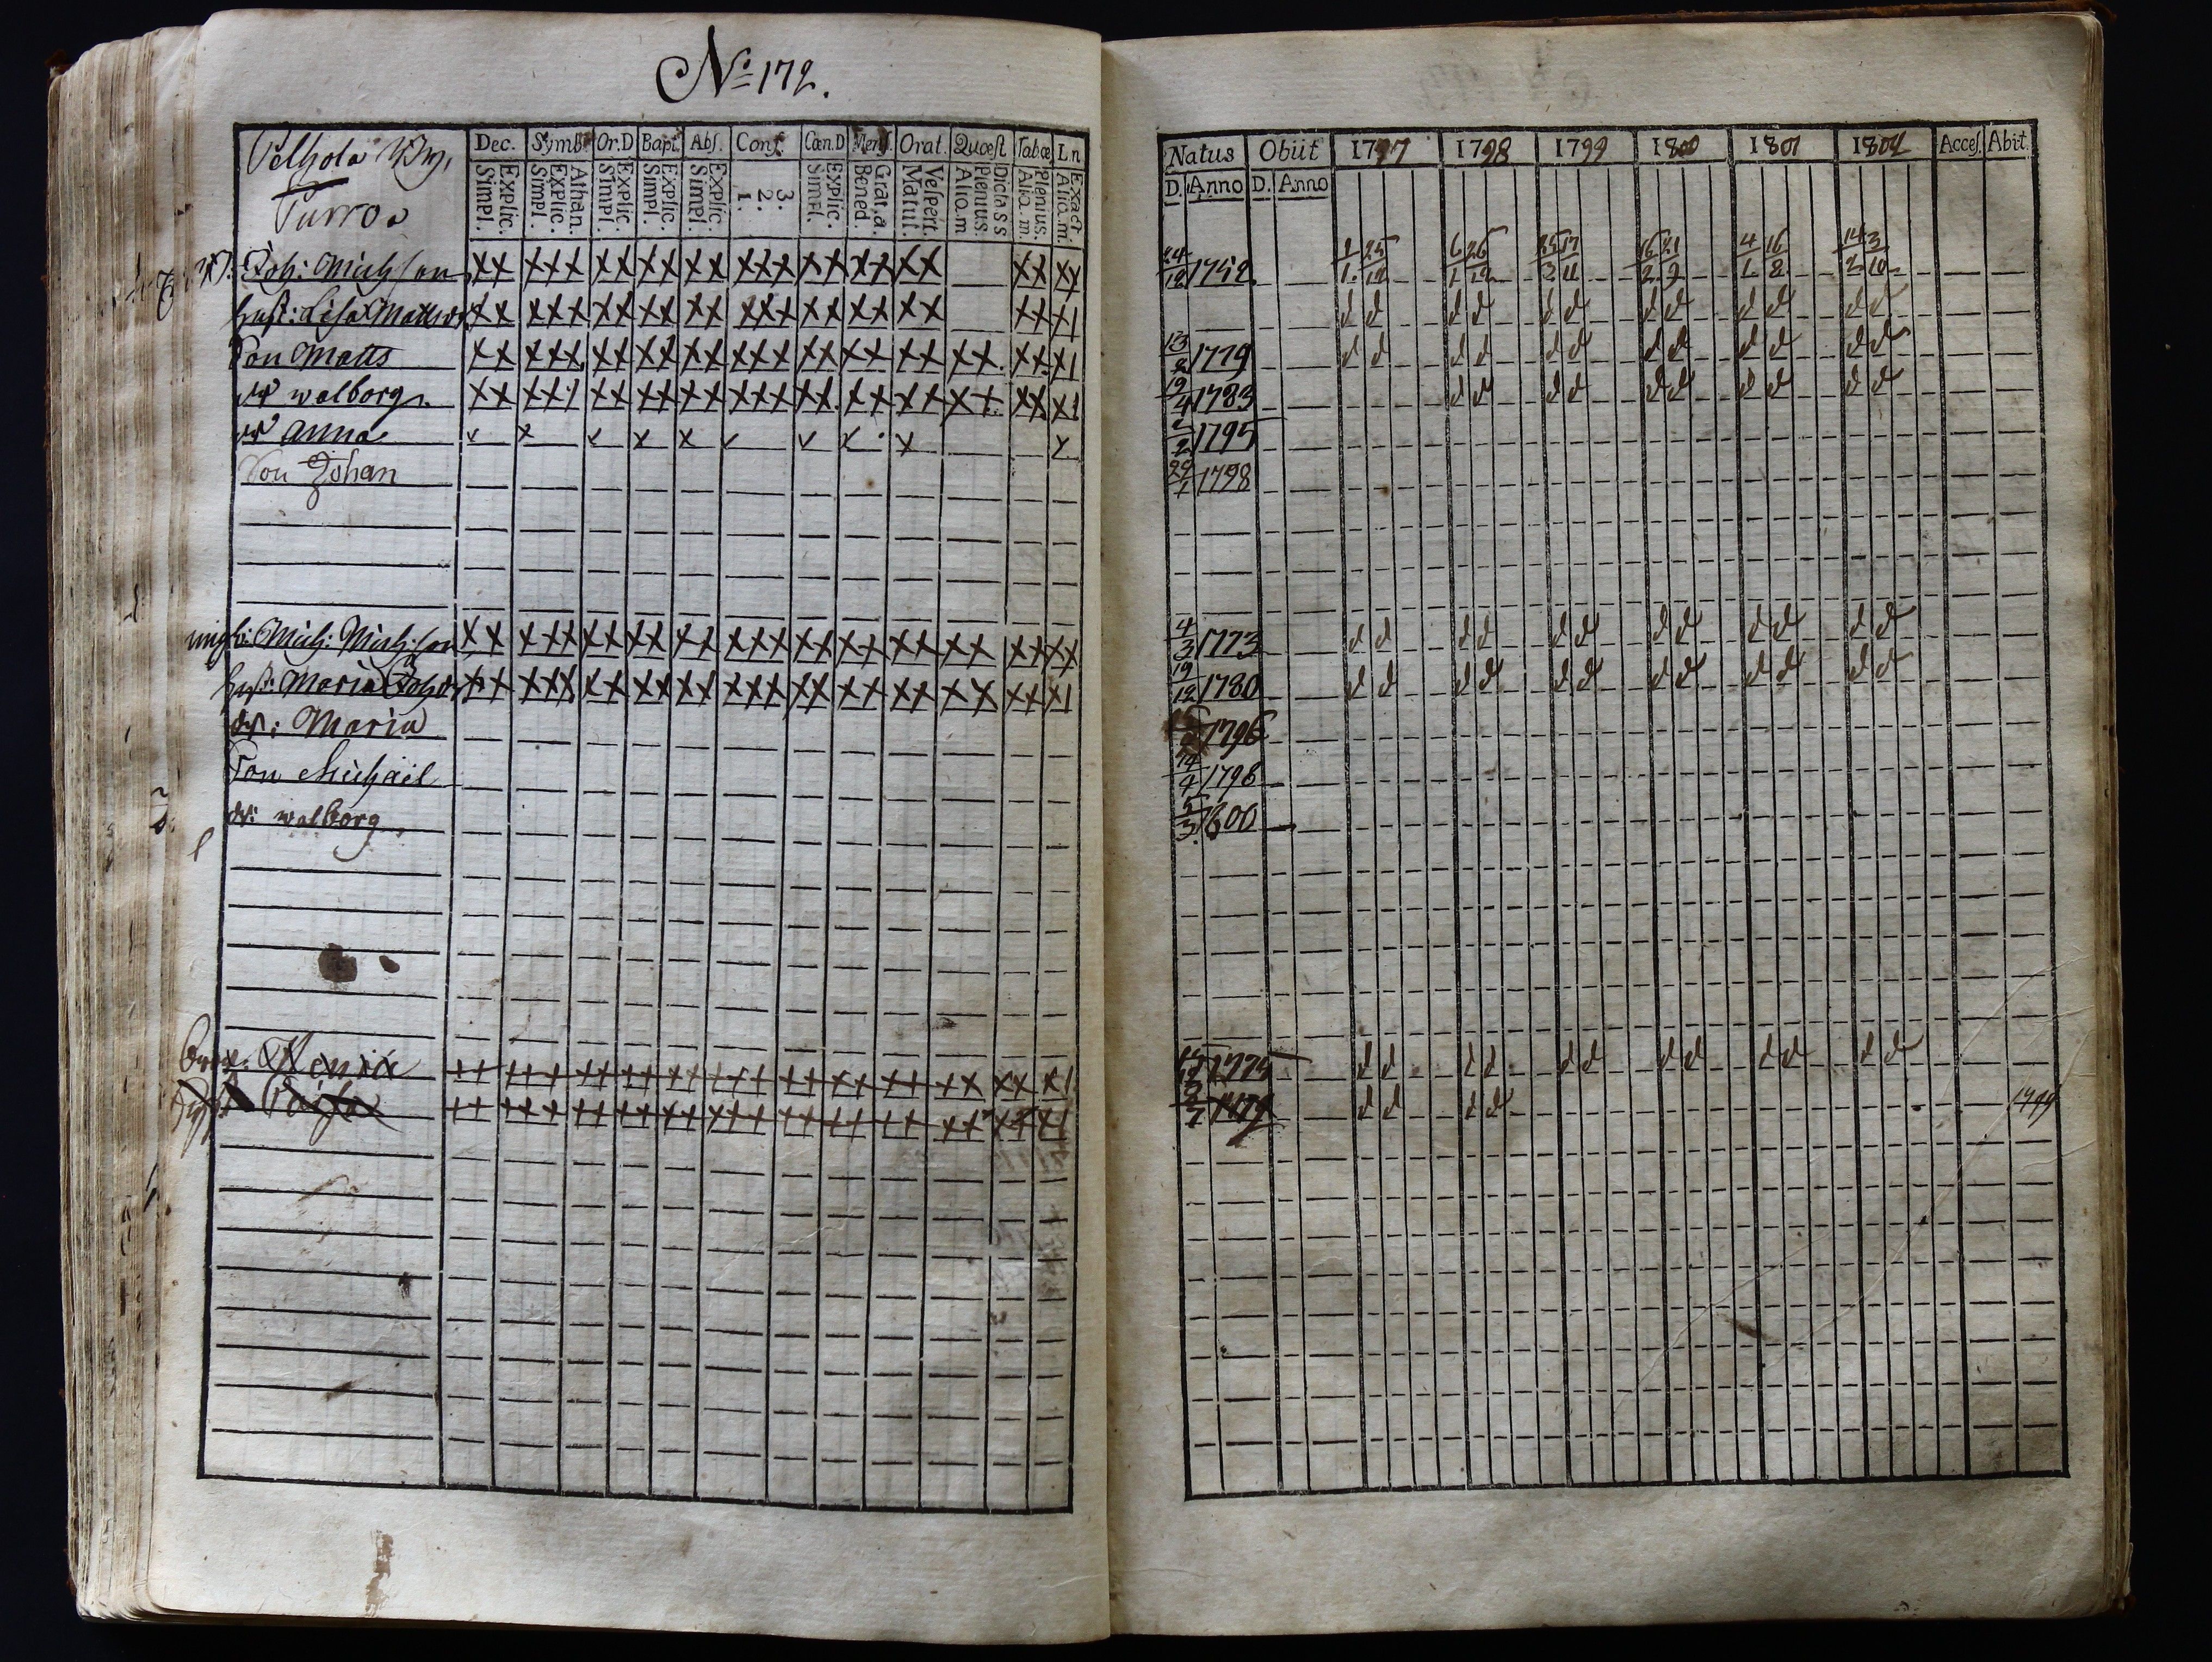 No 172.
Velhola By,
Purroa
Dec. Symb. Or.D Bapt. Abs. Conf. Cœn.D Mens. Orat. Quæst Tabæ Ln
Explic. Simpl. Athan. Explic. Simpl. Explic. Simpl. Explic. Simpl. Explic. Simpl. 3. 2. 1. Explic. Simpl. Grat.a. Bened. Vespert. Matut. Dictass Plenius. Aliq.m Plenius. Aliq.m. Exact. Aliq.m.
Natus Obiit 1797 1798 1799 1800 1801 1802 Acces. Abit.
D. Anno D. Anno
Joh: Mich:son xx xxx xx xx xx xxx xx xx xx xx xx 24/12 1752 6/1 26/12 16/2 21/9 4/1 16/8 14/2 3/10
hust: Lisa Mattsdr xx xxx xx xx xx xxx xx xx xx xx x1 d d d d d d d d d d d d
Son Matts xx xxx xx xx xx xxx xx xx xx xx xx x1 13/8 1779 d d d d d d d d d d d d
dr walborg xx xxx xx xx xx xxx xx xx xx xx xx x1 19/4 1783 d d d d d d d d d d
dr anna x x x x x x x x x x 2/2 1795
Son Johan 29/1 1798
Mich: Mich:son xx xxx xx xx xx xxx xx xx xx xx xx xx 4/3 1773 d d d d d d d d d d d d
hust: Maria Johdr xx xxx xx xx xx xxx xx xx xx xx xx x1 19/12 1780 d d d d d d d d d d d d
dr: Maria 1796
Son Michaël 1798
dr: walborg 5/3 1800
Henric xx xxx xx xx xx xxx xx xx xx xx xx x1 1775 d d d d d d d d d d d d
xx xxx xx xx xx xxx xx xx xx xx xx x1 d d d d 1799